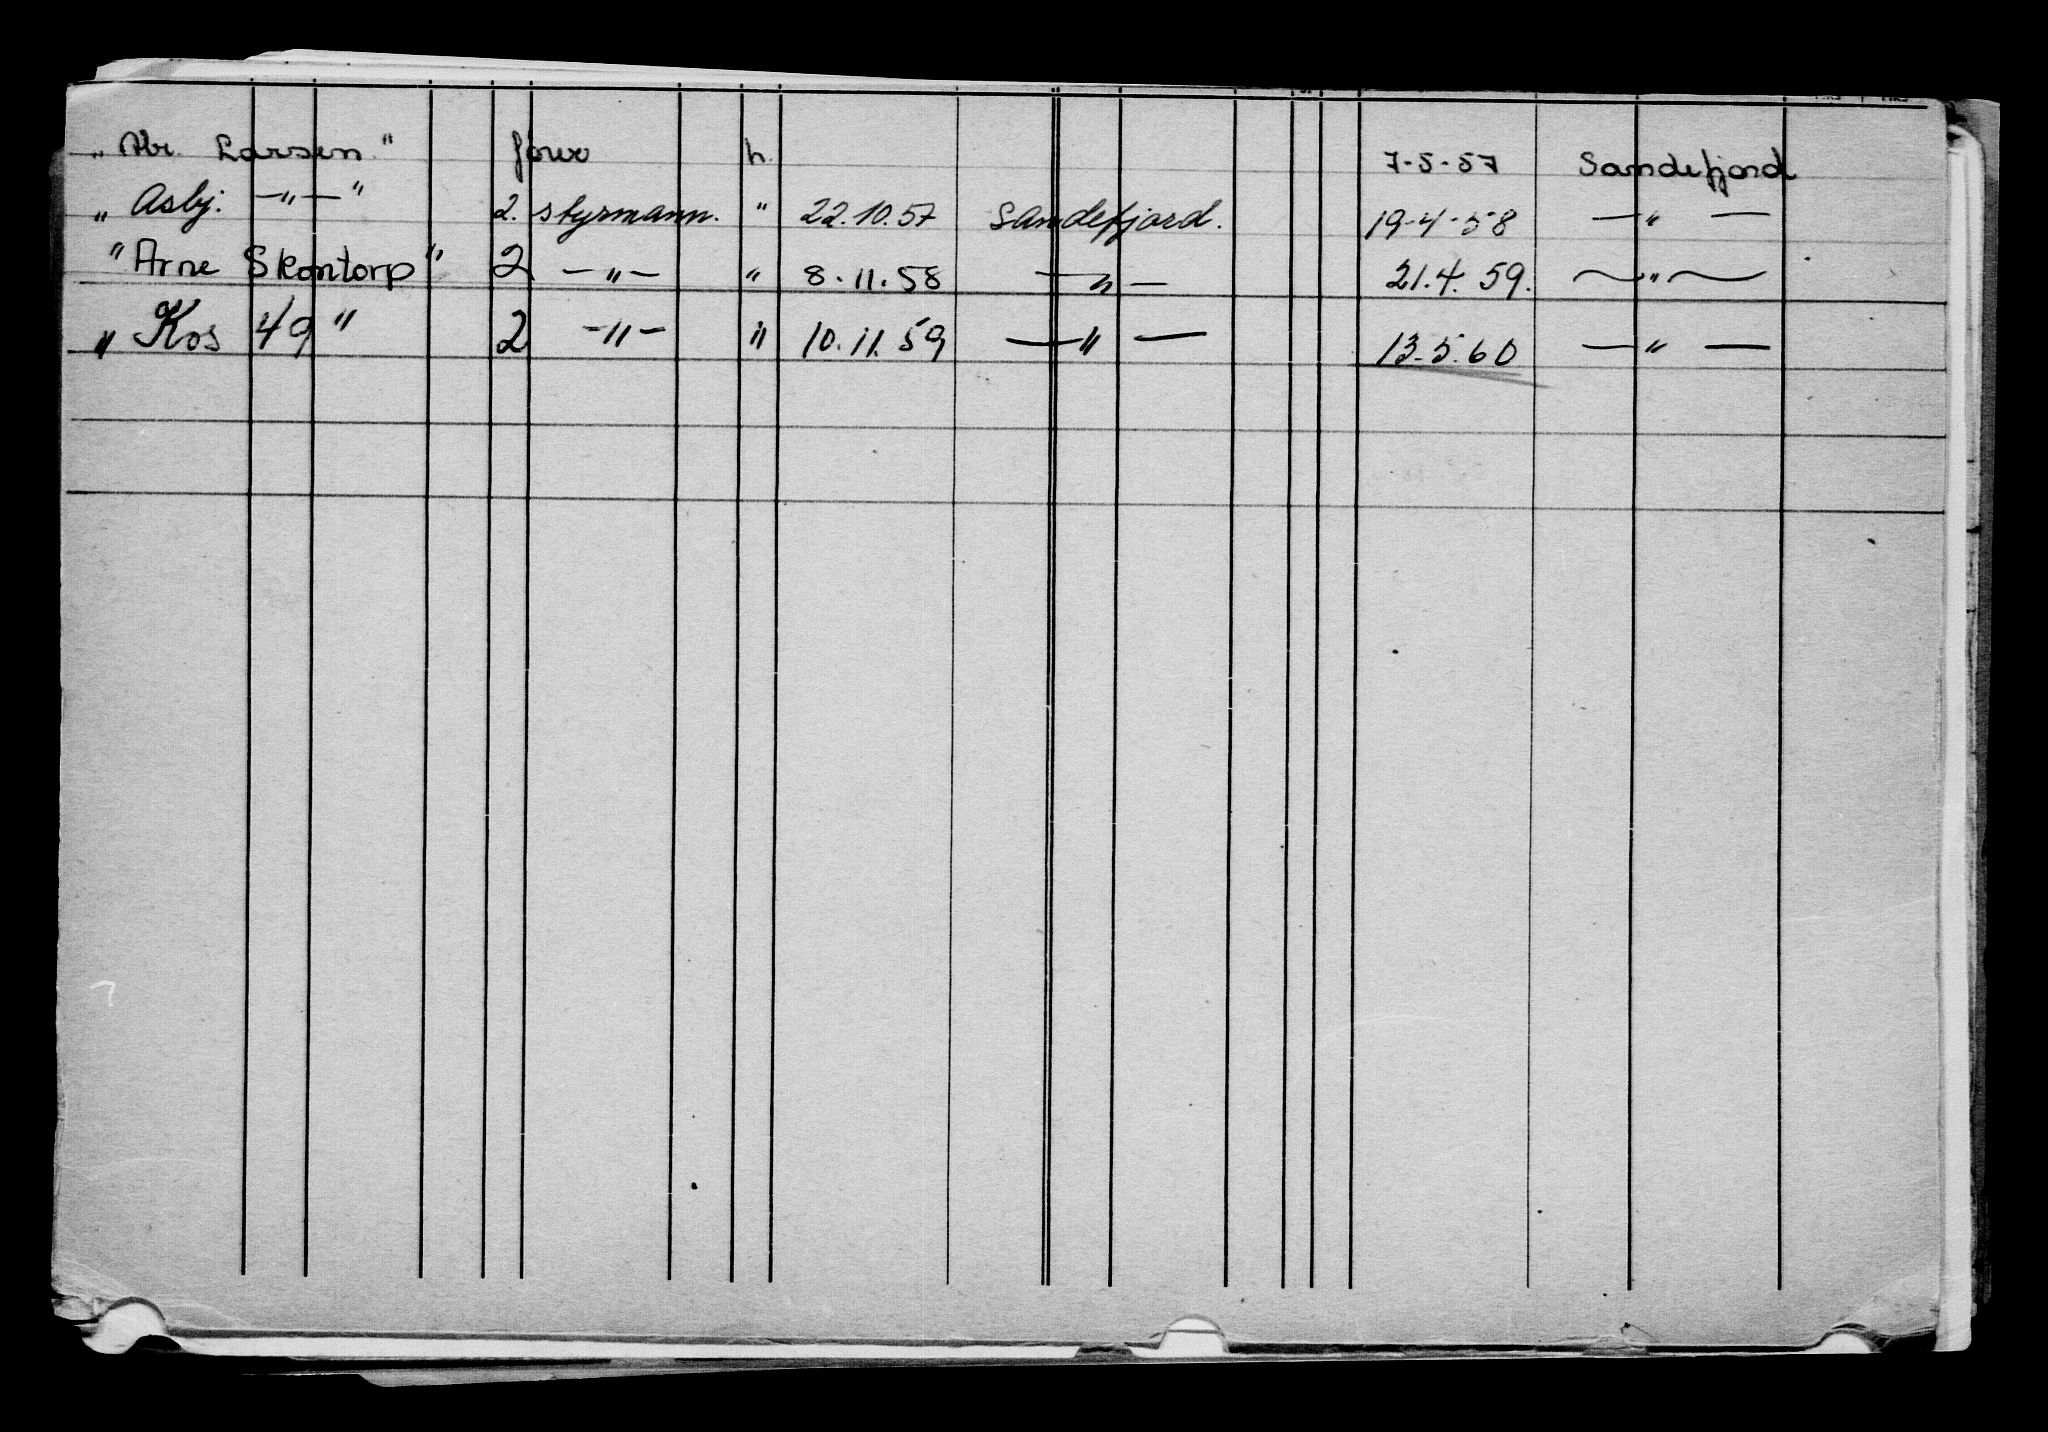 „ Abr. Larsen." h. 7-5-57 Sandefjord
„ Asbj. —"—" 2. styrmann. " 22.10.57 Sandefjord. 19-4-58 —"—
" Arne Skontorp" 2 —"— " 8.11.58 —"— 21.4.59. —"—
„ Kos 49" 2 —"— " 10.11.59 —"— 13.5.60 —"—